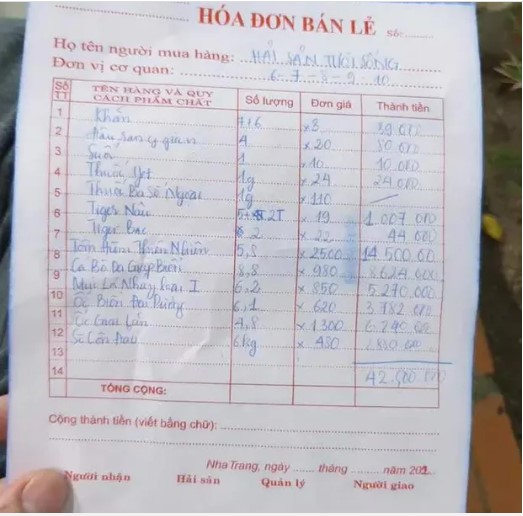 HÓA ĐƠN BÁN LẺ Số:
Họ tên người mua hàng: HẢI SẢN TƯƠI SỐNG
Đơn vị cơ quan: 6-7-8-9 10
Số TT TÊN HÀNG VÀ QUY CÁCH PHẨM CHẤT Số lượng Đơn giá Thành tiền
1 Khăn 7+6 x3 39 000
2 4 x20 80 000
3 Suối 1 x10 10.000
4 Thuốc 1g x24 24 000
5 Thuốc Ba Số Ngoại 1g x110
6 Tiger Nâu 2T x19 1.007 000
7 Tiger Bạc 2 x22 44 000
8 Tôm Hùm Thiên Nhiên 5,8 x2500 14 500.00
9 Cá Bò Da Giáp Biển 8,8 x980 8.624.000
10 Mực Lá Nháy Loại I 6,2 x850 5.270.000
11 Ốc Biên Đài Dương 6,1 x620 3.782 000
12 Ốc Gai Lớn 4,8 x1300 6.240 000
13 Sò Côn Đảo 6kg x480 2880 000
14 42.600 000
TỔNG CỘNG:
Cộng thành tiền (viết bằng chữ):
Nha Trang, ngày tháng năm 202
Người nhận Hải sản Quản lý Người giao